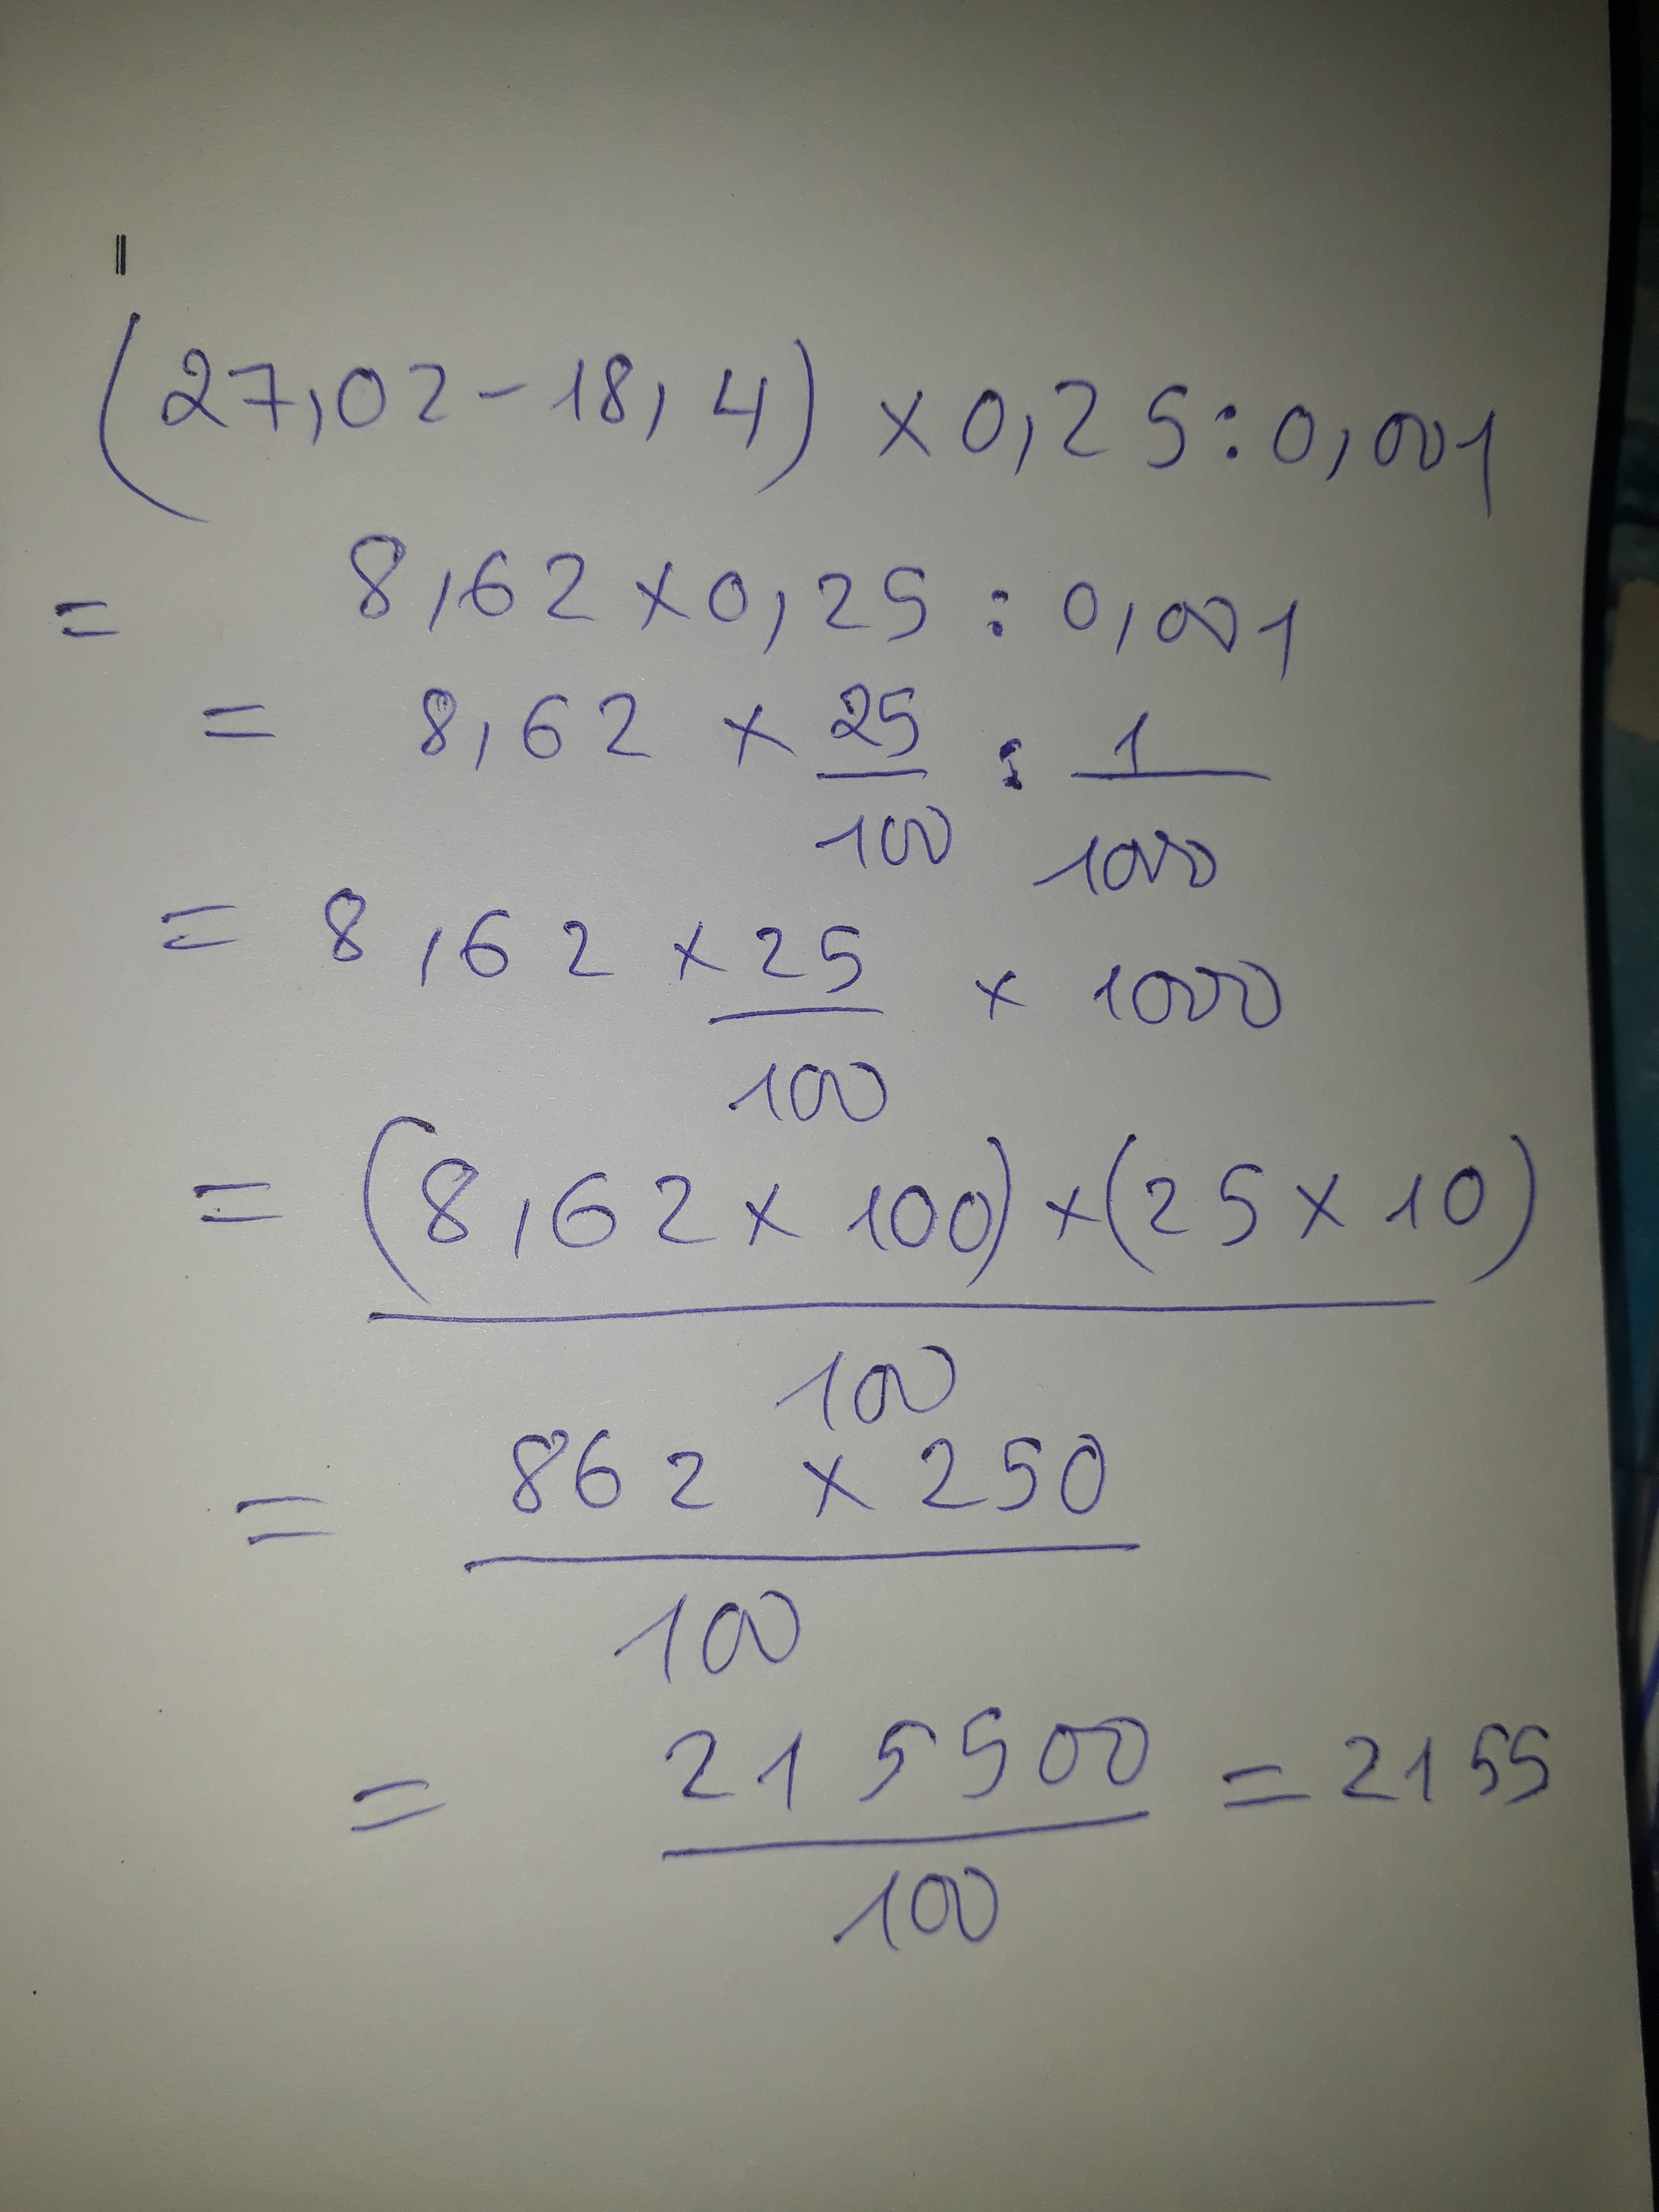 (27,02-18,4) × 0,25 : 0,001
= 8,62 × 0,25 : 0,001
= 8,62 × 25/100 : 1/1000
= 8,62 × 25/100 × 1000
= (8,62 × 100) × (25 × 10)/100
= 862 × 250/100
= 215500/100 = 2155